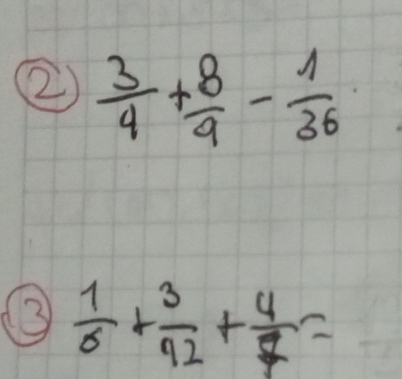 ② 3/4 + 8/9 - 1/36
③ 1/6 + 3/12 + 4/ =